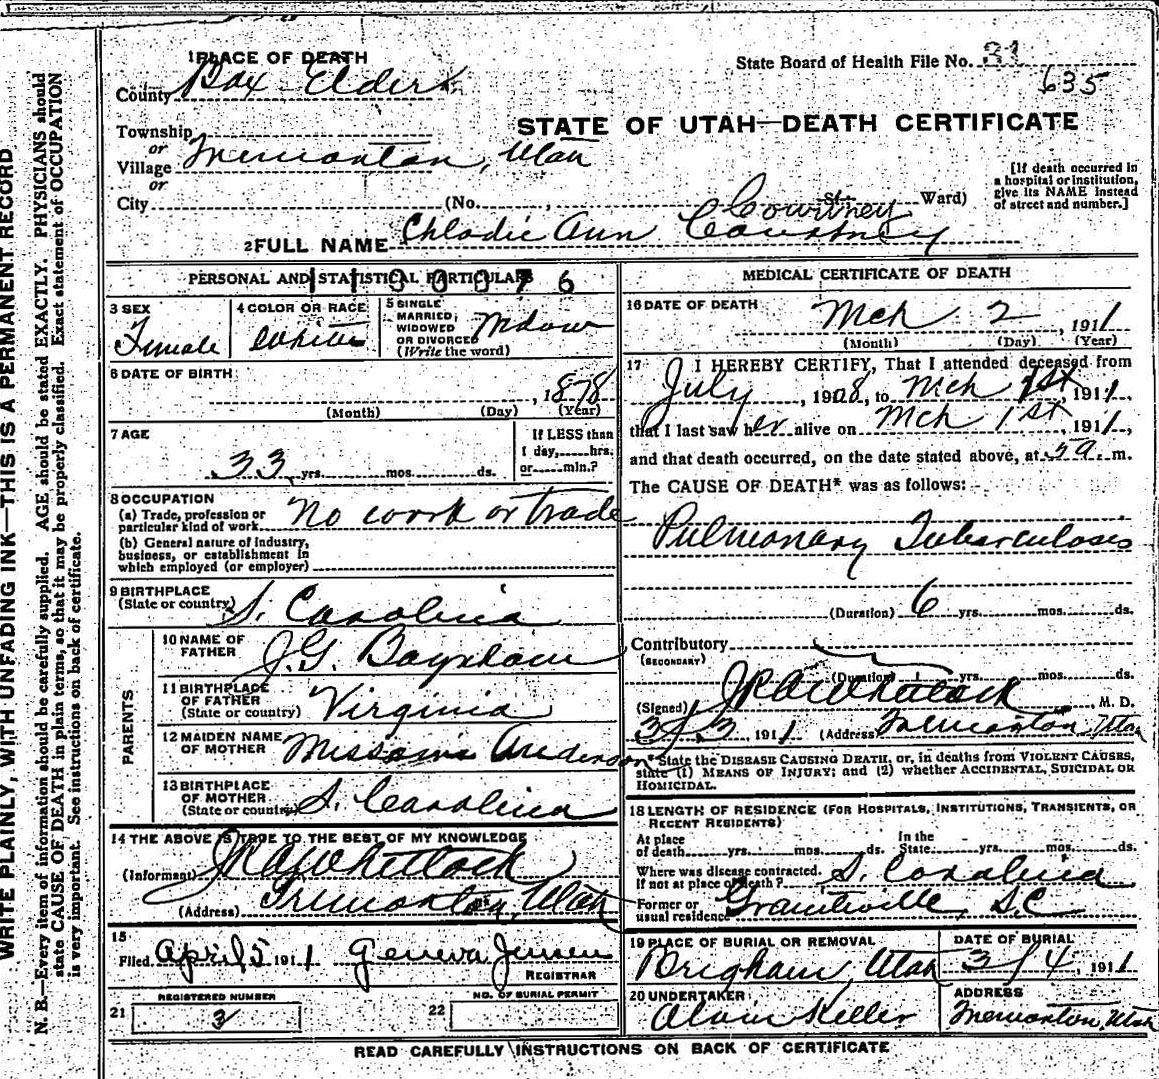 WRITE PLAINLY, WITH UNFADING INK—THIS IS A PERMANENT RECORD
N. B.—Every item of information should be carefully supplied. AGE should be stated EXACTLY. PHYSICIANS should
state CAUSE OF DEATH in plain terms, so that it may be properly classified. Exact statement of OCCUPATION
is very important. See instructions on back of certificate.
1 PLACE OF DEATH
County Box Elder
State Board of Health File No. 31
635
STATE OF UTAH—DEATH CERTIFICATE
Township
or
Village Tremonton, Utah
or
City (No. , St., Ward)
[If death occurred in
a hospital or institution,
give its NAME instead
of street and number.]
Courtney
2 FULL NAME Chlodie Ann Courtney
PERSONAL AND STATISTICAL PARTICULARS
1100076
3 SEX
Female
4 COLOR OR RACE
White
5 SINGLE
MARRIED,
WIDOWED
OR DIVORCED
(Write the word)
Widow
6 DATE OF BIRTH
, 1878
(Month) (Day) (Year)
7 AGE
33 yrs. mos. ds.
If LESS than
1 day, hrs.
or min.?
8 OCCUPATION
(a) Trade, profession or
particular kind of work No work or trade
(b) General nature of industry,
business, or establishment in
which employed (or employer)
9 BIRTHPLACE
(State or country) S. Carolina
PARENTS
10 NAME OF
FATHER J. G. Baynham
11 BIRTHPLACE
OF FATHER
(State or country) Virginia
12 MAIDEN NAME
OF MOTHER Anderson
13 BIRTHPLACE
OF MOTHER
(State or country) S. Carolina
14 THE ABOVE IS TRUE TO THE BEST OF MY KNOWLEDGE
(Informant) Whitlock
(Address) Tremonton, Utah
15
Filed April 5 1911 Geneva Jensen
REGISTRAR
REGISTERED NUMBER
21 3
NO. OF BURIAL PERMIT
22
MEDICAL CERTIFICATE OF DEATH
16 DATE OF DEATH
Mch 2, 1911
(Month) (Day) (Year)
17 I HEREBY CERTIFY, That I attended deceased from
July, 1908, to Mch 1st, 1911,
that I last saw her alive on Mch 1st, 1911,
and that death occurred, on the date stated above, at 5 a. m.
The CAUSE OF DEATH* was as follows:
Pulmonary Tuberculosis
(Duration) 6 yrs. mos. ds.
Contributory
(SECONDARY)
(Duration) yrs. mos. ds.
(Signed) Whitlock, M. D.
3/3, 1911 (Address) Tremonton, Utah
*State the DISEASE CAUSING DEATH, or, in deaths from VIOLENT CAUSES,
state (1) MEANS OF INJURY; and (2) whether ACCIDENTAL, SUICIDAL OR
HOMICIDAL.
18 LENGTH OF RESIDENCE (FOR HOSPITALS, INSTITUTIONS, TRANSIENTS, OR
RECENT RESIDENTS)
At place
of death yrs. mos. ds.
In the
State yrs. mos. ds.
Where was disease contracted.
If not at place of death? S. Carolina
Former or
usual residence Graniteville, S.C
19 PLACE OF BURIAL OR REMOVAL
Brigham, Utah
DATE OF BURIAL
3/4, 1911
20 UNDERTAKER
Alvin Keller
ADDRESS
Tremonton, Utah
READ CAREFULLY INSTRUCTIONS ON BACK OF CERTIFICATE